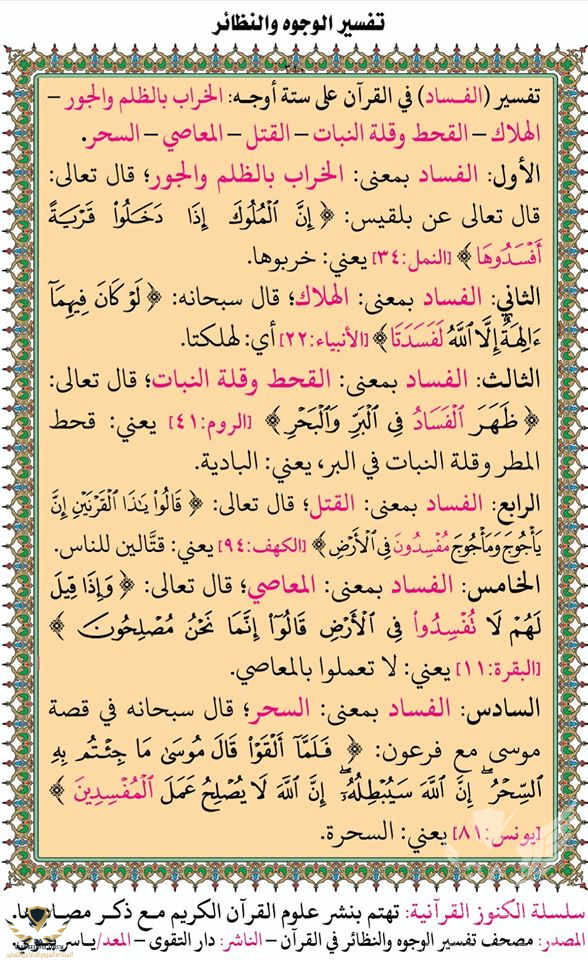 تفسير الوجوه والنظائر
تفسير (الفساد) في القرآن على ستة أوجه: الخراب بالظلم والجور –
الهلاك – القحط وقلة النبات – القتل – المعاصي – السحر.
الأول: الفساد بمعنى: الخراب بالظلم والجور؛ قال تعالى:
قال تعالى عن بلقيس: ﴿ إِنَّ ٱلْمُلُوكَ إِذَا دَخَلُوا۟ قَرْيَةً
أَفْسَدُوهَا ﴾ [النمل:٣٤] يعني: خربوها.
الثاني: الفساد بمعنى: الهلاك؛ قال سبحانه: ﴿ لَوْ كَانَ فِيهِمَآ
ءَالِهَةٌ إِلَّا ٱللَّهُ لَفَسَدَتَا ﴾ [الأنبياء:٢٢] أي: لهلكتا.
الثالث: الفساد بمعنى: القحط وقلة النبات؛ قال تعالى:
﴿ ظَهَرَ ٱلْفَسَادُ فِى ٱلْبَرِّ وَٱلْبَحْرِ ﴾ [الروم:٤١] يعني: قحط
المطر وقلة النبات في البر، يعني: البادية.
الرابع: الفساد بمعنى: القتل؛ قال تعالى: ﴿ قَالُوا۟ يَٰذَا ٱلْقَرْنَيْنِ إِنَّ
يَأْجُوجَ وَمَأْجُوجَ مُفْسِدُونَ فِى ٱلْأَرْضِ ﴾ [الكهف:٩٤] يعني: قتَّالين للناس.
الخامس: الفساد بمعنى: المعاصي؛ قال تعالى: ﴿ وَإِذَا قِيلَ
لَهُمْ لَا تُفْسِدُوا۟ فِى ٱلْأَرْضِ قَالُوٓا۟ إِنَّمَا نَحْنُ مُصْلِحُونَ ﴾
[البقرة:١١] يعني: لا تعملوا بالمعاصي.
السادس: الفساد بمعنى: السحر؛ قال سبحانه في قصة
موسى مع فرعون: ﴿ فَلَمَّآ أَلْقَوْا۟ قَالَ مُوسَىٰ مَا جِئْتُم بِهِ
ٱلسِّحْرُ ۖ إِنَّ ٱللَّهَ سَيُبْطِلُهُۥٓ ۖ إِنَّ ٱللَّهَ لَا يُصْلِحُ عَمَلَ ٱلْمُفْسِدِينَ ﴾
[يونس:٨١] يعني: السحرة.
سلسلة الكنوز القرآنية: تهتم بنشر علوم القرآن الكريم مع ذكر مصادرها.
المصدر: مصحف تفسير الوجوه والنظائر في القرآن – الناشر: دار التقوى – المعد/ياسر